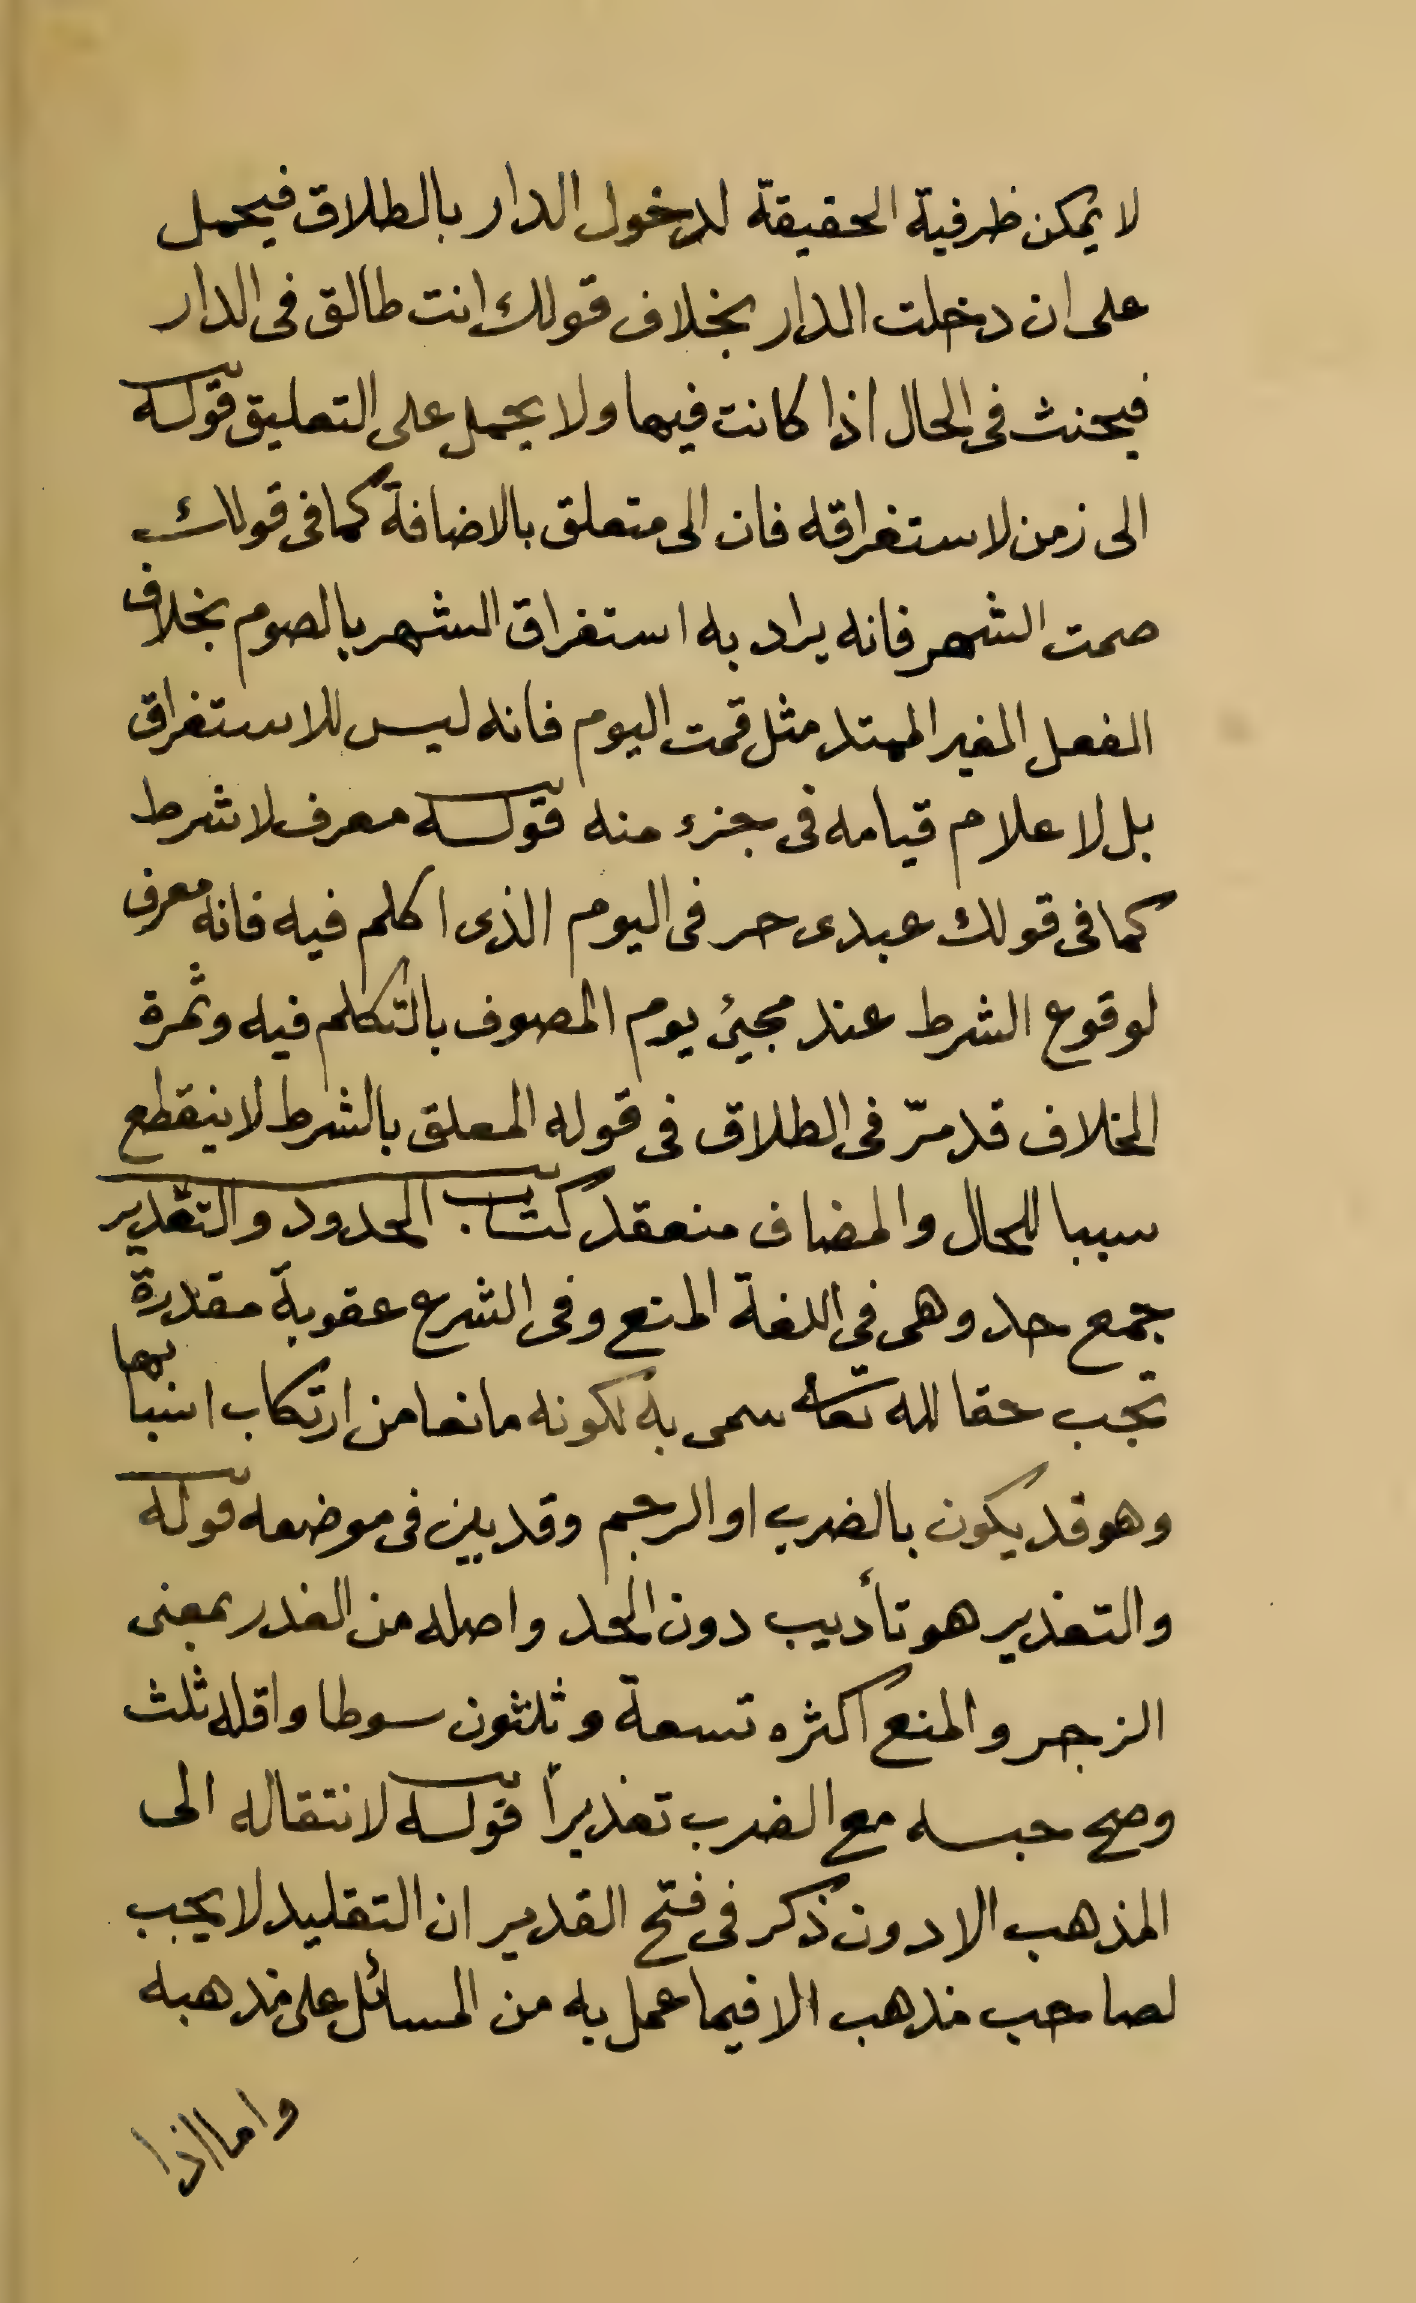 لا يمكن ظرفية الحقيقة لدخول الدار بالطلاق فيحمل
على ان دخلت الدار بخلاف قولك انت طالق فى الدار
فيحنث فى الحال اذا كانت فيها ولا يحمل على التعليق قوله
الى زمن لاستغراقه فان الى متعلق بالاضافة كما فى قولك
صمت الشهر فانه يراد به استغراق الشهر بالصوم بخلاف
الفعل الغير الممتد مثل قمت اليوم فانه ليس للاستغراق
بل لاعلام قيامه فى جزء منه قوله معرف لا شرط
كما فى قولك عبدى حر فى اليوم الذى اكلم فيه فانه معرف
لوقوع الشرط عند مجيئ يوم المصوف بالتكلم فيه وثمرة
الخلاف قد مرّ فى الطلاق فى قوله المعلق بالشرط لا ينقطع
سببا للحال والمضاف منعقد كتاب الحدود والتغدير
جمع حد وهى فى اللغة المنع وفى الشرع عقوبة مقدرة
تجب حقا لله تعالى سمى به لكونه مانعا من ارتكاب اسبابها
وهو قد يكون بالضرب او الرجم وقد بين فى موضعه قوله
والتغذير هو تأديب دون الحد واصله من الغدر بمعنى
الزجر والمنع اكثره تسعة وثلثون سوطا واقله ثلث
وصح حبسه مع الضرب تغذيراً قوله لانتقاله الى
المذهب الادون ذكر فى فتح القدير ان التقليد لا يجب
لصاحب مذهب الا فيما عمل به من المسائل على مذهبه
واما اذا